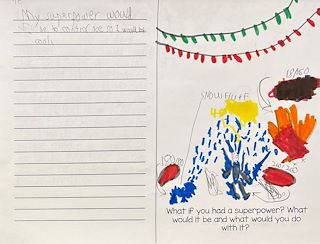 My superpower would
be to control ice so I would be
cool
SNOWFLUTE
What if you had a superpower? What
would it be and what would you do
with it?